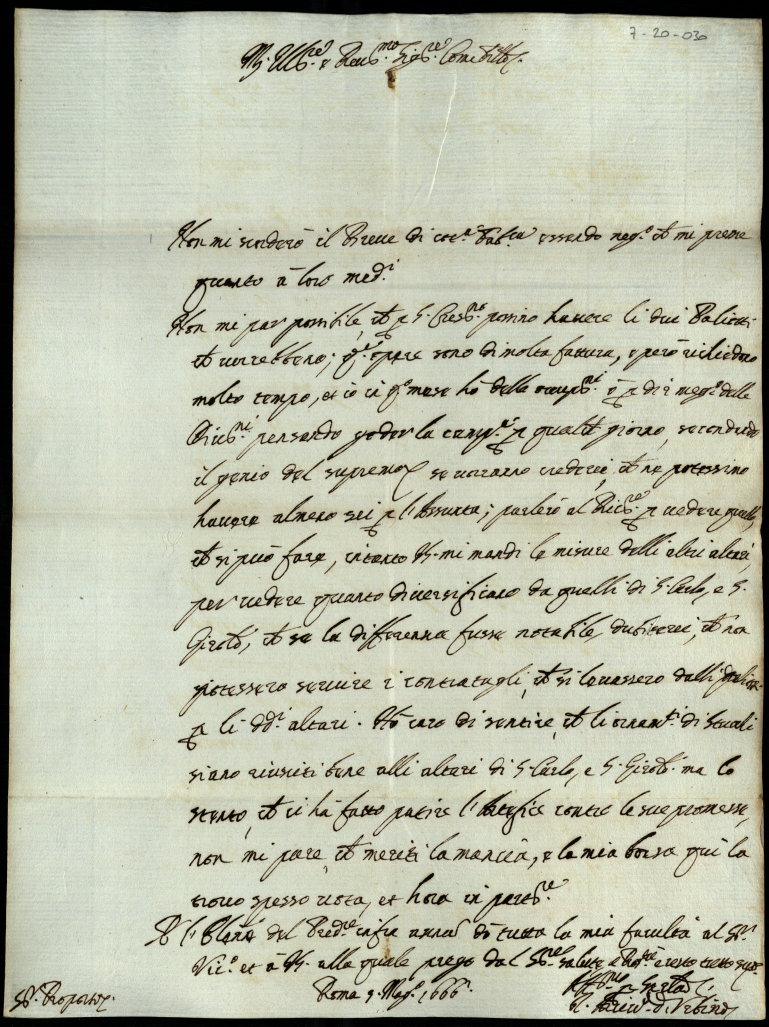 7-20-030
M. Ill.re e Rev.mo Sig.re Come fr͞ello
Non mi scorderò il Breve di cot.a Fab.ca essendo neg.o ch̃ mi preme
quanto à loro med.i
Non mi par possibile, ch̃ p S. possino havere li dui Paliotti
ch̃ vorrebbero; q.e opere sono di molta fattura, e però richiedono
molto tempo, et io in q.o mese hò delle occup.ni
pensando goder la camp.a p qualch̃ giorno, secondando
il genio del supremo se vorranno credere, ch̃ ne potessimo
havere almeno sei p l'Assunta; parlerò al p vedere quello,
ch̃ si può fare, intanto V.S. mi mandi le misure delli altri altari,
per vedere quanto diversificano da quelli di S. Carlo, e S.
Girol.o, ch̃ se la differenza fusse notabile, dubiterei, ch̃ non
potessero servire i contratagli, ch̃ si levassero dalli
p li dd.i altari. Hò caro di sentire, ch̃ li ornam.ti di
siano riusciti bene alli altari di S. Carlo, e S. Girol.o ma lo
stento, ch̃ ci hà fatto patire l'Artefice contro le sue promesse,
non mi pare, ch̃ meriti la mancia, e la mia borsa quì la
trovo spesso vota, et hora in part.re
P l' del Pred.re infra annu dò tutta la mia facultà al S.r
Vic.o et à V.S. alla quale prego dal S.re salute e resto tutto suo
Roma 9 Mag.o 1666
S.r Proposto